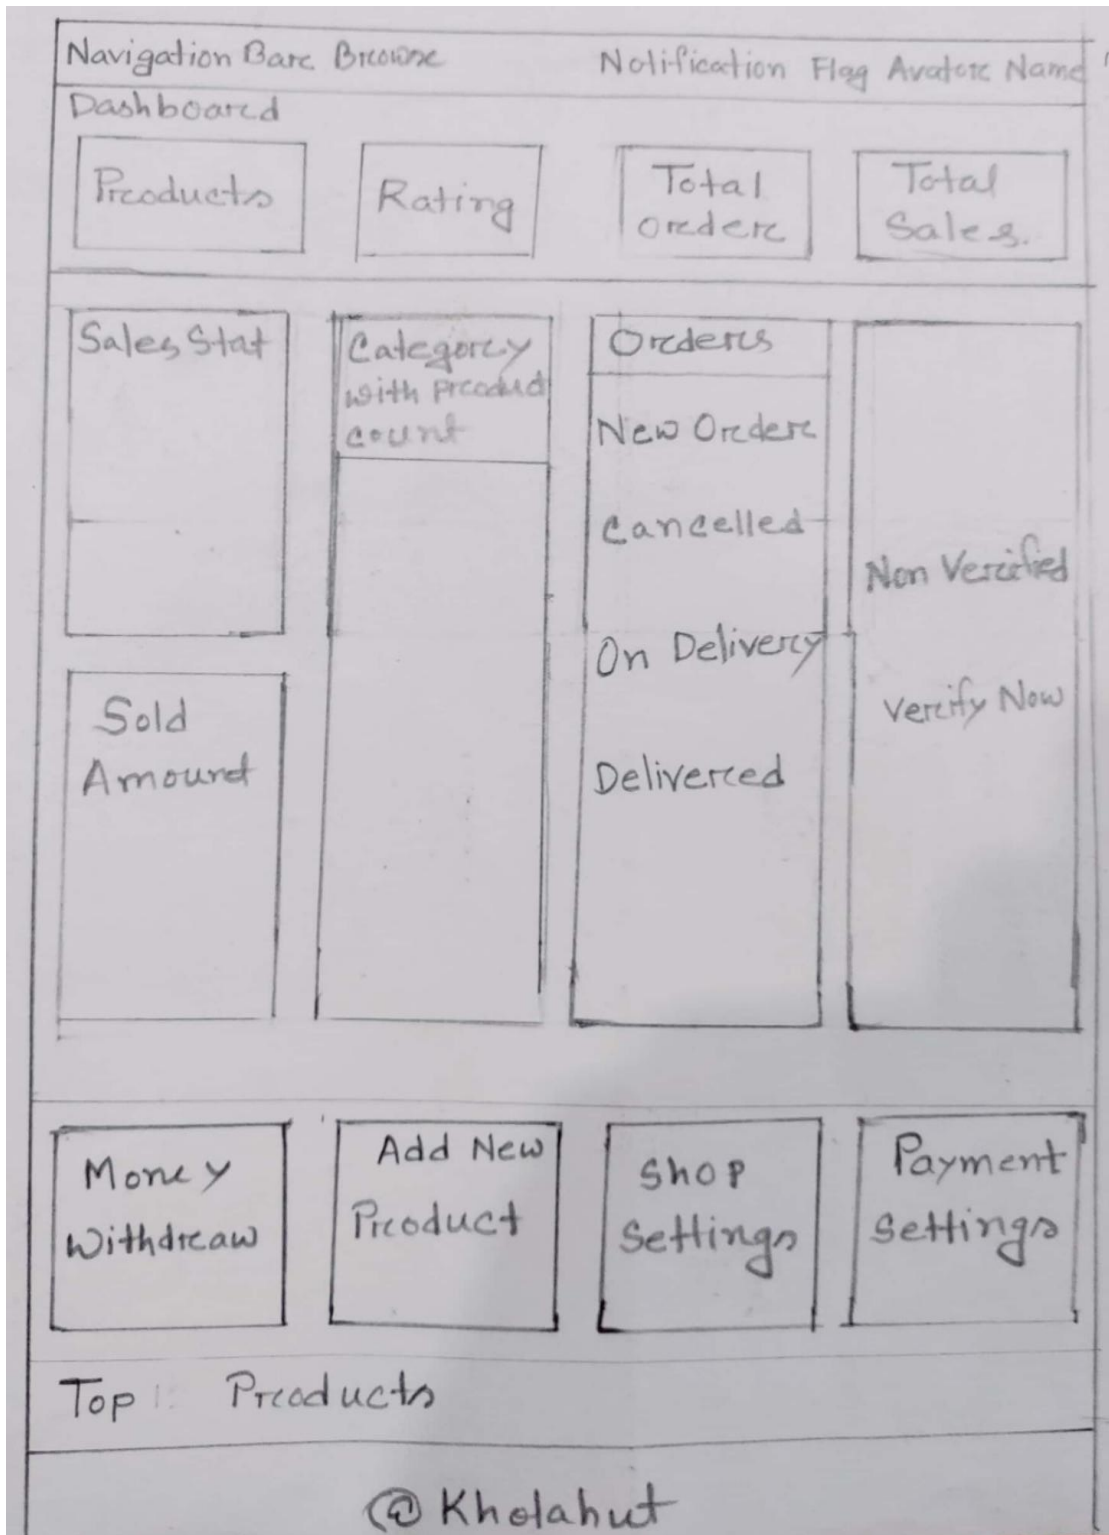 Navigation Bar Browse Notification Flag Avatar Name
Dashboard
Products
Rating
Total
Order
Total
Sales.
Sales Stat
Category
with Product
count
Orders
New Order
Cancelled
On Delivery
Delivered
Non Verified
Verify Now
Sold
Amount
Money
Withdraw
Add New
Product
Shop
Settings
Payment
Settings
Top Products
@Kholahut